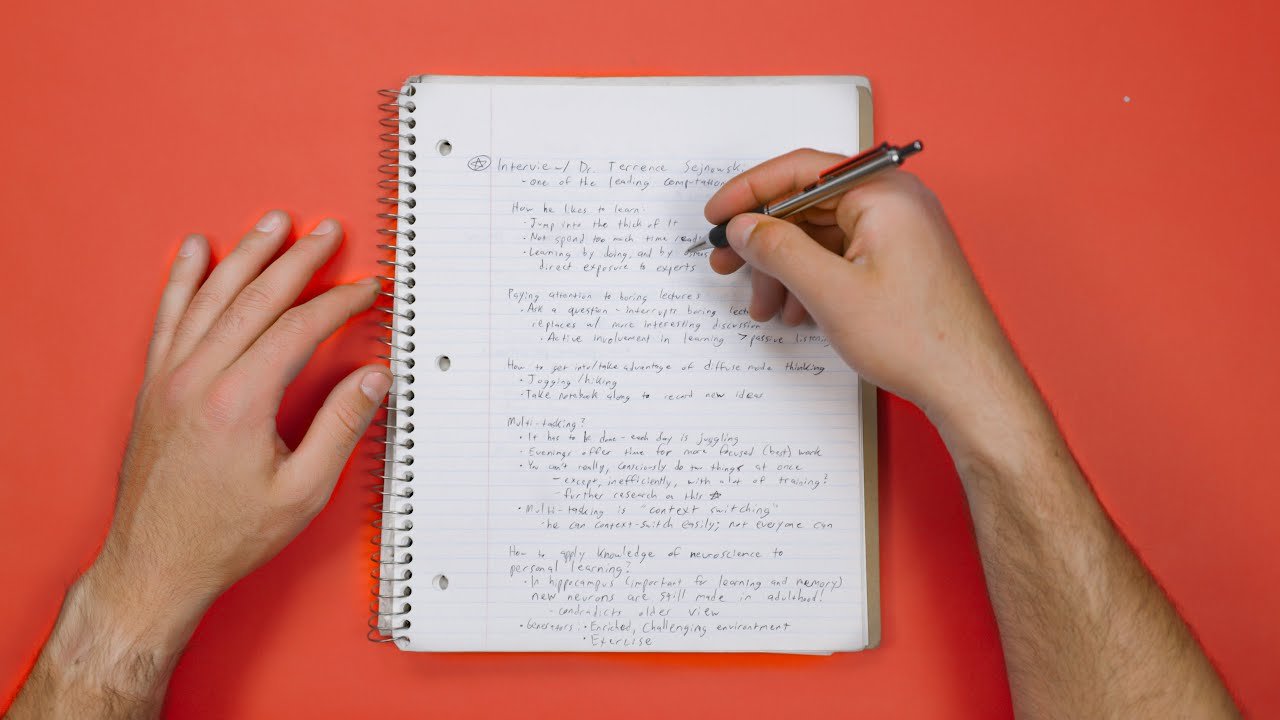 Interview w/ Dr. Terrence Sejnowski
- one of the leading computation
How he likes to learn:
• Jump into the thick of it
• Not spend too much time
• Learning by doing, and by
direct exposure to experts
Paying attention to boring lectures
• Ask a question - interrupts boring
replaces w/ more interesting discussion
• Active involvement in learning > passive listening
How to get into/take advantage of diffuse mode thinking
• Jogging/hiking
• Take notebook along to record new ideas
Multi-tasking?
• It has to be done - each day is juggling
• Evenings offer time for more focused (best) work
• You can't really, consciously do two things at once
- except, inefficiently, with a lot of training?
- further research on this ☆
• Multi-tasking is "context switching"
- he can context-switch easily; not everyone can
How to apply knowledge of neuroscience to
personal learning?
• In hippocampus (important for learning and memory)
new neurons are still made in adulthood!
- contradicts older view
• Generators: • Enriched, challenging environtment
• Exercise